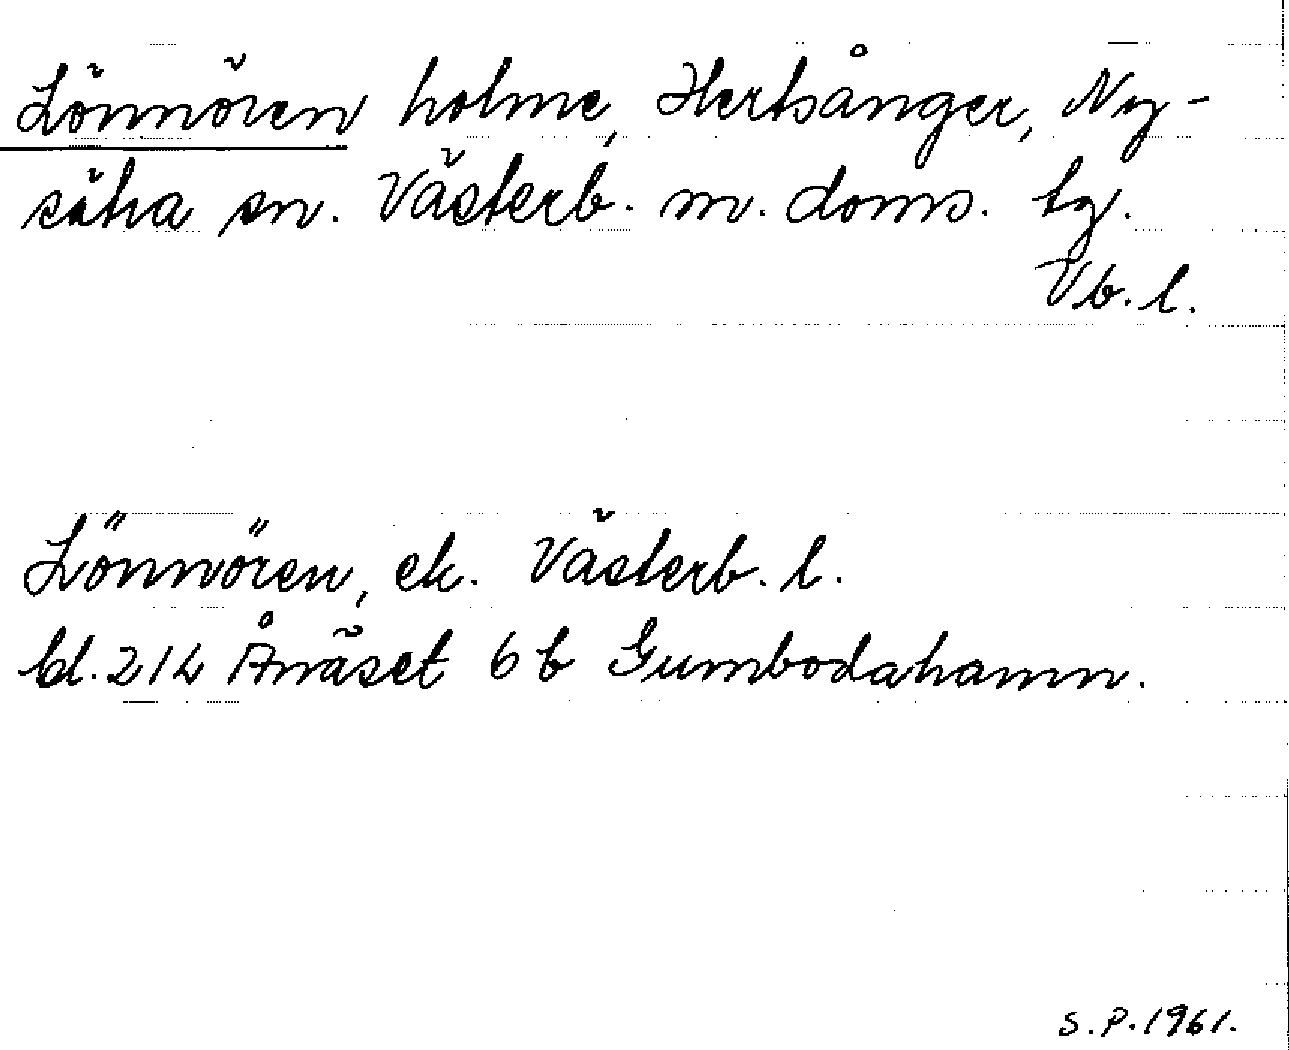 Lönnören holme, Hertsånger, Ny-
sätra sn. Västerb. m. doms. tg.
Vb. l.
Lönnören, ek. Västerb. l.
bl. 214 Ånäset 6 b Gumbodahamn.
S.P. 1961.